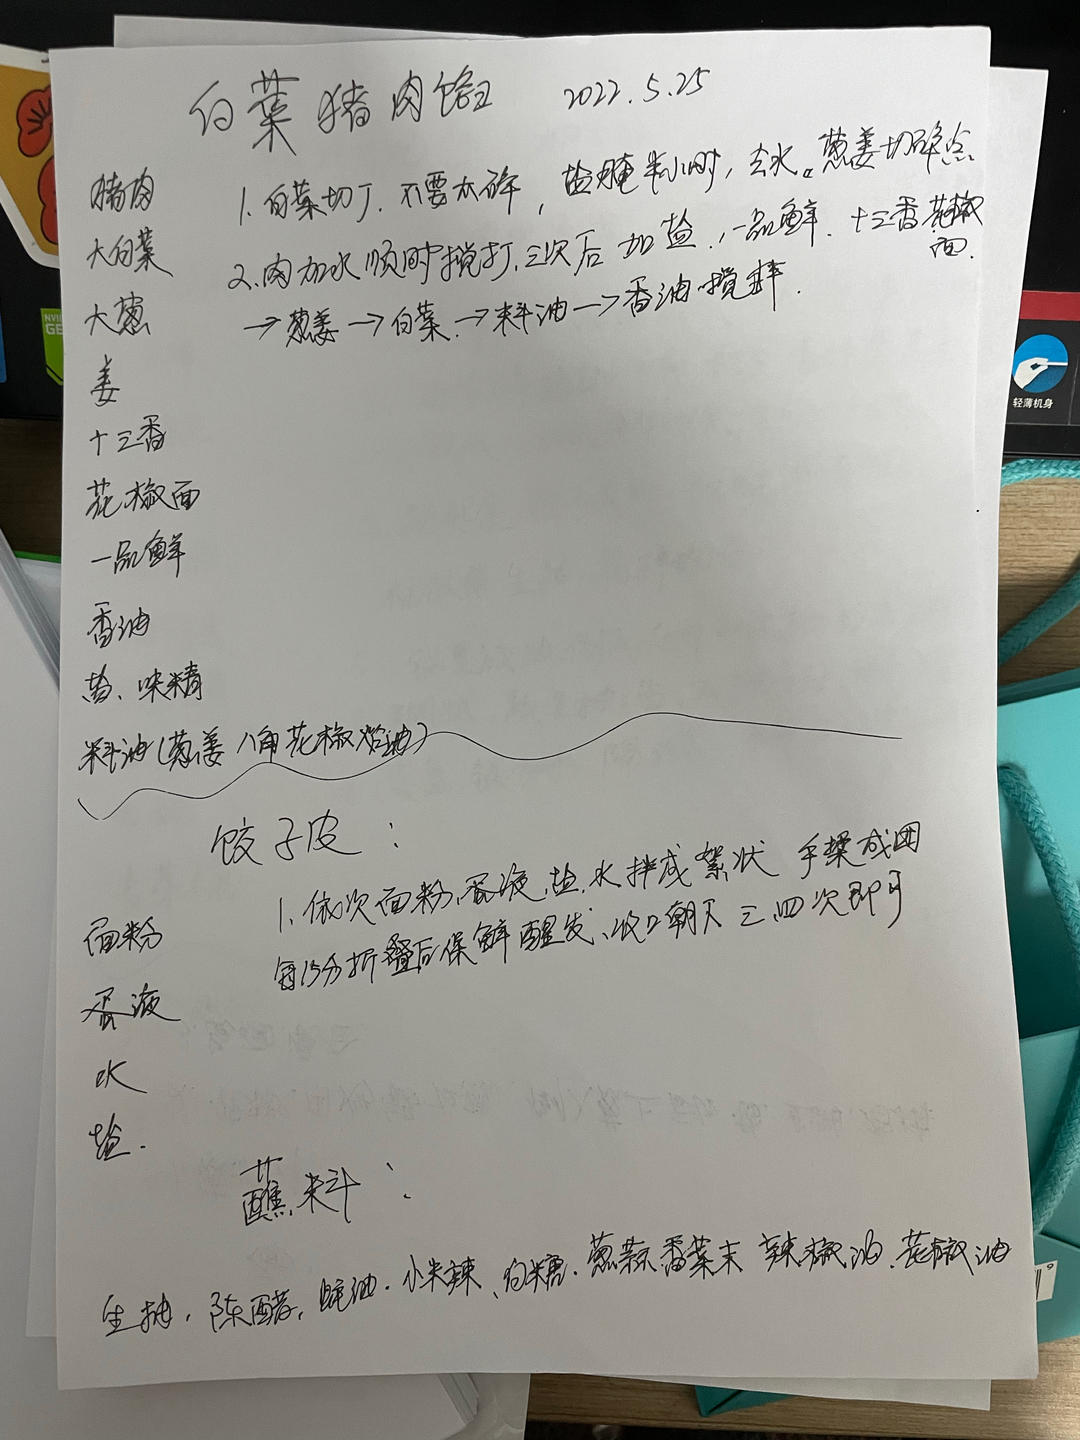 白菜猪肉馅 2022.5.25
猪肉
大白菜
大葱
姜
十三香
花椒面
一品鲜
香油
盐、味精
料油(葱姜八角花椒炸油)
1.白菜切丁.不要太碎,盐腌半小时,去水。葱姜切碎点
2.肉加水顺时搅打,三次后加盐.一品鲜.十三香花椒
面.
→葱姜→白菜→料油→香油搅拌.
饺子皮:
面粉
蛋液
水
盐.
1.依次面粉,蛋液,盐.水拌成絮状 手揉成团
每15分折叠后保鲜醒发、收口朝下三.四次即可
蘸料:
生抽,陈醋,蚝油.小米辣、白糖.葱蒜香菜末 辣椒油.花椒油
轻薄机身